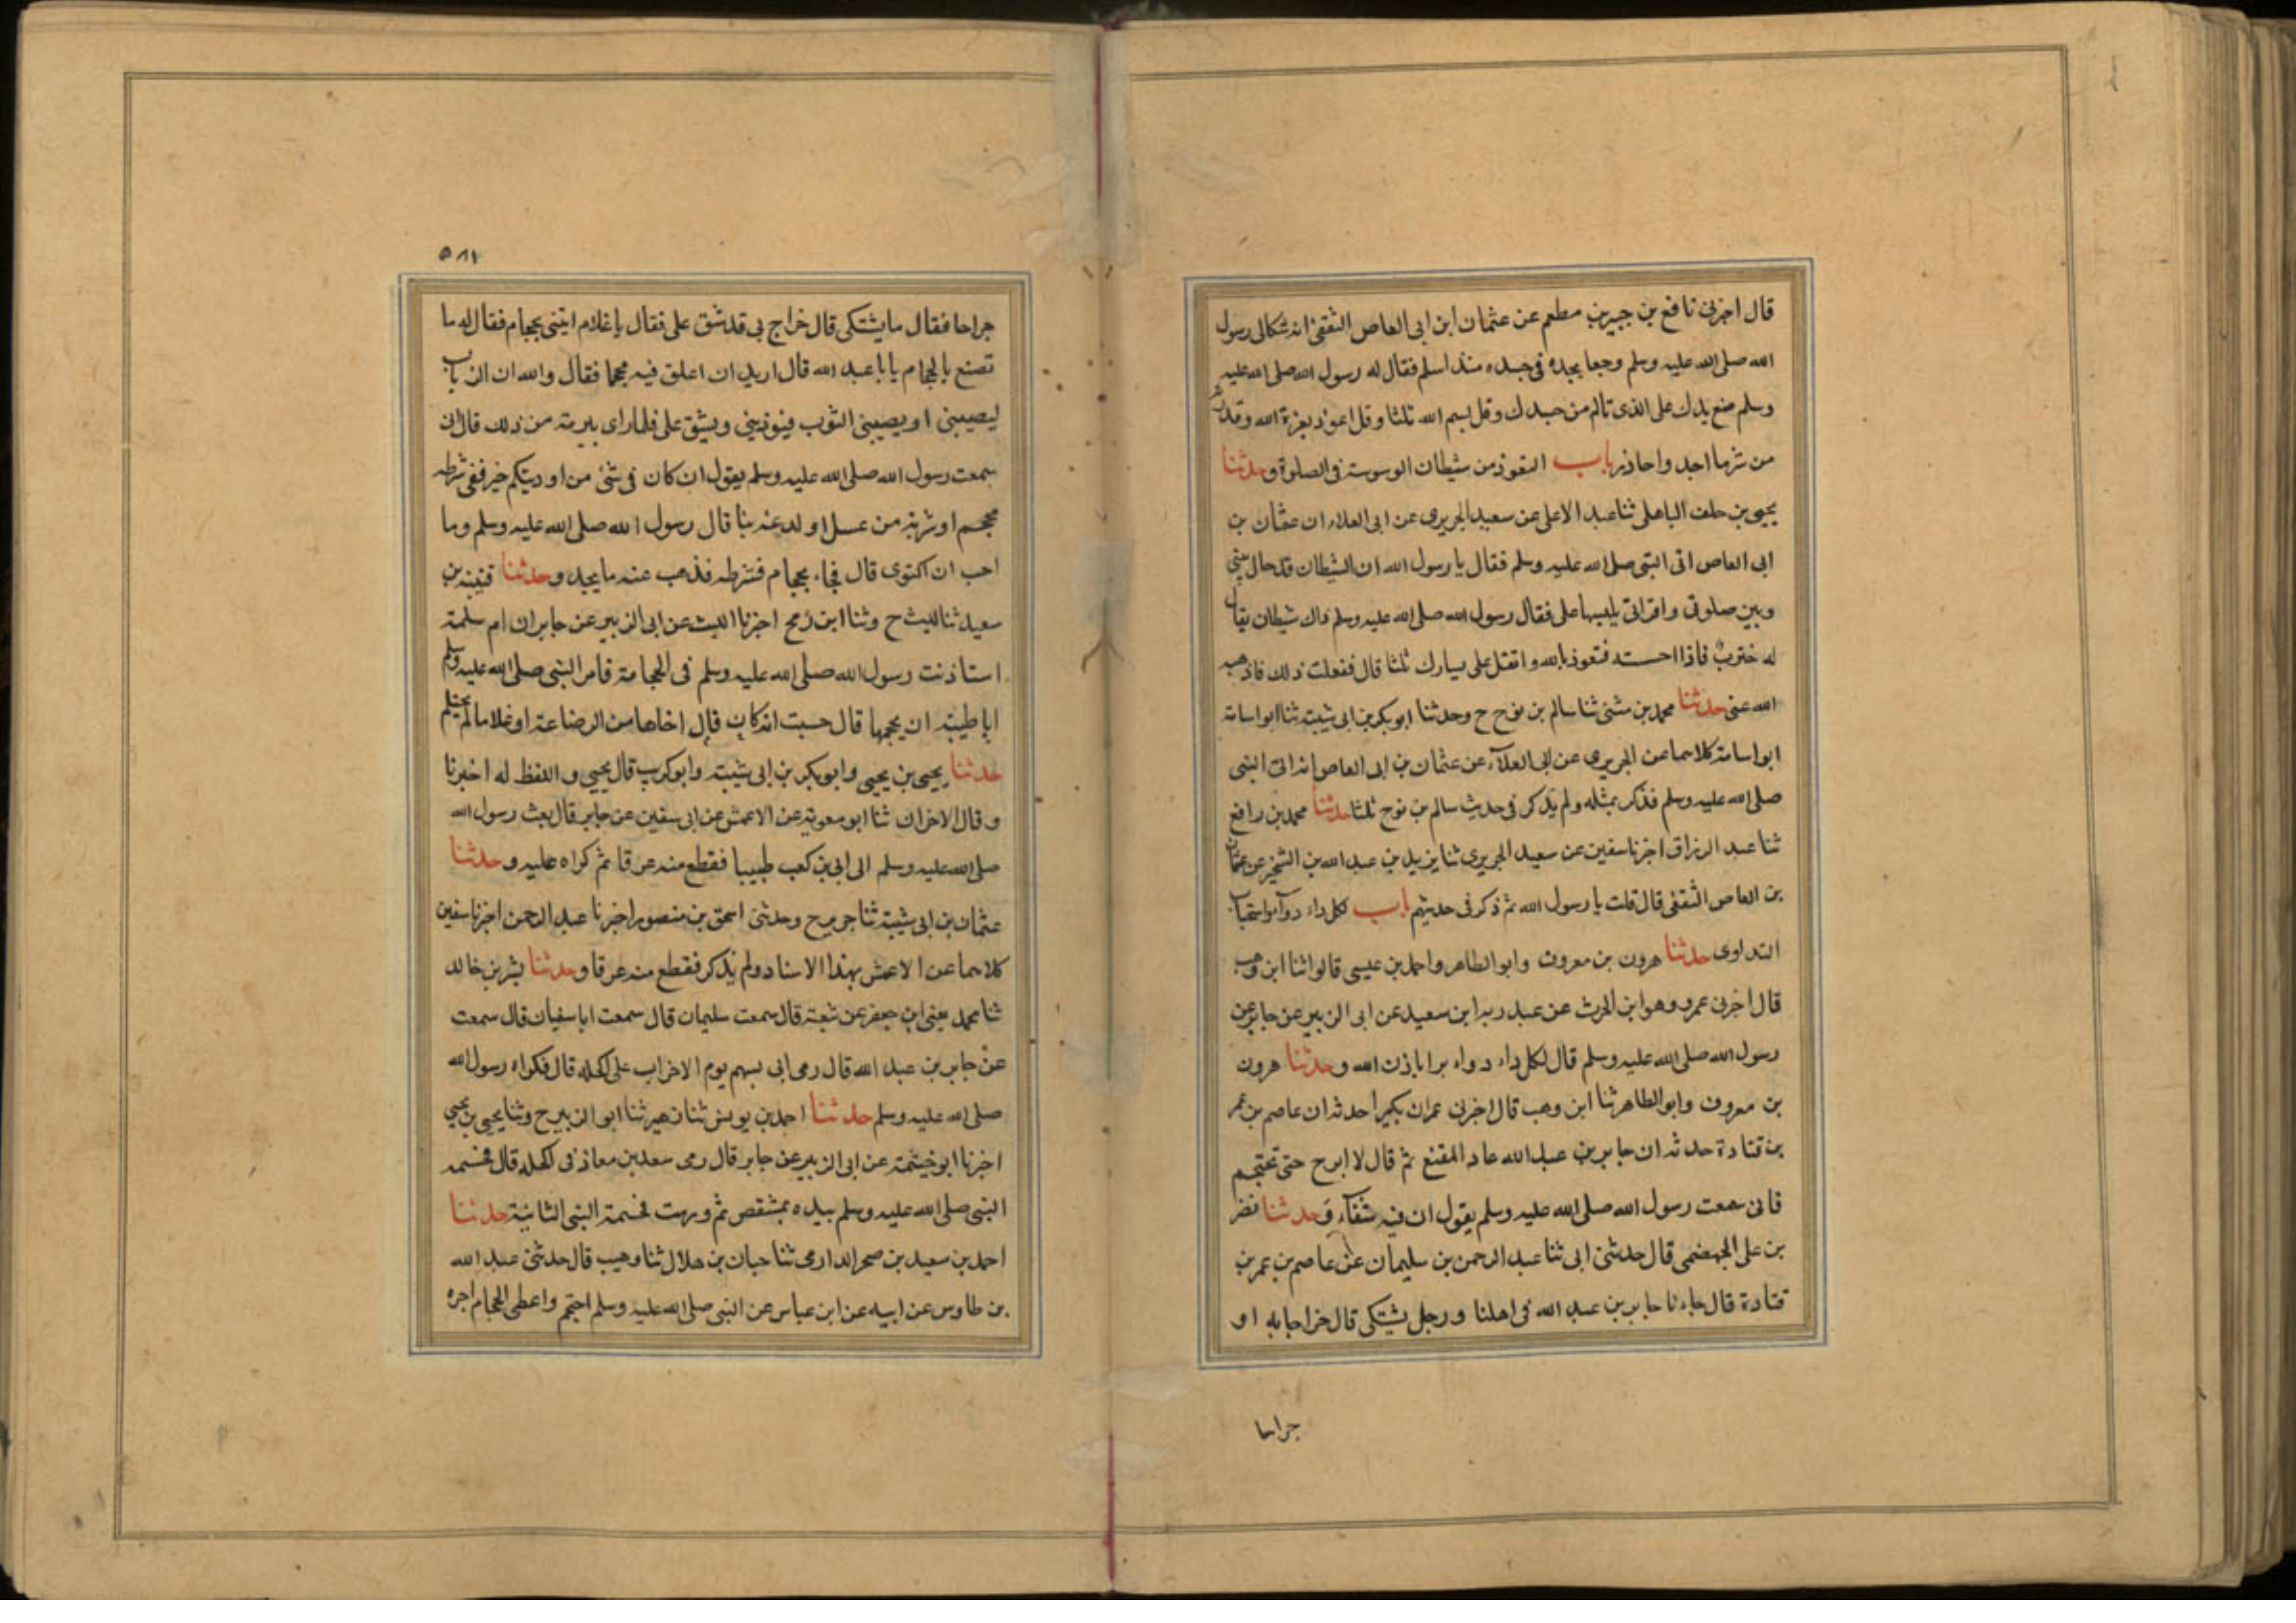 قال اخبرني نافع بن جبير بن مطعم عن عثمان ابن ابى العاص الثقفى انه شكا الى رسول
الله صلى الله عليه وسلم وجعا يجده فى جسده منذ اسلم فقال له رسول الله صلى الله عليه
وسلم ضع يدك على الذى تالم من جسدك وقل بسم الله ثلثا وقل اعوذ بعزة الله وقدرته
من شر ما اجد واحاذر باب التعوذ من شيطان الوسوسة فى الصلوة وحدثنا
يحيى بن خلف الباهلى ثنا عبد الاعلى عن سعيد الجريرى عن ابى العلاء ان عثمان بن
ابى العاص اتى النبى صلى الله عليه وسلم فقال يا رسول الله ان الشيطان قد حال بينى
وبين صلوتى وقراتى يلبسها على فقال رسول الله صلى الله عليه وسلم ذاك شيطان يقال
له خنزب فاذا احسسته فتعوذ بالله واتفل على يسارك ثلثا قال ففعلت ذلك فاذهبه
الله عنى حدثنا محمد بن مثنى ثنا سالم بن نوح ح وحدثنا ابو بكر بن ابى شيبة ثنا ابو اسامة
ابو اسامة كلاهما عن الجريرى عن ابى العلاء عن عثمان بن ابى العاص انه اتى النبى
صلى الله عليه وسلم فذكر بمثله ولم يذكر فى حديث سالم بن نوح ثلثا حدثنا محمد بن رافع
ثنا عبد الرزاق اخبرنا سفين عن سعيد الجريرى ثنا يزيد بن عبد الله بن الشخير عن عثمان
بن العاص الثقفى قال قلت يا رسول الله ثم ذكر فى حديثهم باب لكل داء دواء واستحباب
التداوى حدثنا هرون بن معروف وابو الطاهر واحمد بن عيسى قالوا ثنا ابن وهب
قال اخبرنى عمرو وهو ابن الحرث عن عبد ربه ابن سعيد عن ابى الزبير عن جابر عن
رسول الله صلى الله عليه وسلم قال لكل داء دواء برا باذن الله وحدثنا هرون
بن معروف وابو الطاهر ثنا ابن وهب قال اخبرنى عمران بكيرا حدثه ان عاصم بن عمر
بن قتادة حدثه ان جابر بن عبد الله عاد المقنع ثم قال لا ابرح حتى تحتجم
فانى سمعت رسول الله صلى الله عليه وسلم يقول ان فيه شفاء وحدثنا نضر
بن على الجهضمى قال حدثنى ابى ثنا عبد الرحمن بن سليمان عن عاصم بن عمر بن
قتادة قال جاءنا جابر بن عبد الله فى اهلنا ورجل يشتكى قال خراجا به او
جراحا
٥٨٢
جراحا فقال ما يشتكى قال خراج بى قد شق على فقال يا غلام ايتنى بحجام فقال له ما
تصنع بالحجام يا با عبد الله قال اريد ان اعلق فيه محجما فقال والله ان الذباب
ليصيبنى او يصيبنى الثوب فيؤذينى ويشق على فلما راى تبرمه من ذلك قال انى
سمعت رسول الله صلى الله عليه وسلم يقول ان كان فى شئ من اوديتكم خير ففى شرطه
محجم او شربة من عسل او لدغة بنا قال رسول الله صلى الله عليه وسلم وما
احب ان اكتوى قال فجاء بحجام فشرطه فذهب عنه ما يجد وحدثنا قتيبة بن
سعيد ثنا ليث ح وثنا ابن رمح اخبرنا الليث عن ابى الزبير عن جابر ان ام سلمة
استاذنت رسول الله صلى الله عليه وسلم فى الحجامة فامر النبى صلى الله عليه وسلم
ابا طيبة ان يحجمها قال حسبت انه كان قال اخاها من الرضاعة او غلاما لم يحتلم
حدثنا يحيى بن يحيى وابو بكر بن ابى شيبة وابو كريب قال يحيى واللفظ له اخبرنا
وقال الاخران ثنا ابو معوية عن الاعمش عن ابى سفين عن جابر قال بعث رسول الله
صلى الله عليه وسلم الى ابى بن كعب طبيبا فقطع منه عرقا ثم كواه عليه وحدثنا
عثمان بن ابى شيبة ثنا جرير ح وحدثنى اسحق بن منصور اخبرنا عبد الرحمن اخبرنا سفين
كلاهما عن الاعمش بهذا الاسناد ولم يذكر فقطع منه عرقا وحدثنا بشر بن خالد
ثنا محمد يعنى ابن جعفر عن شعبة قال سمعت سليمان قال سمعت ابا سفيان قال سمعت
عن جابر بن عبد الله قال رمى ابى بسهم يوم الاحزاب على اكحله قال فكواه رسول الله
صلى الله عليه وسلم حدثنا احمد بن يونس ثنا زهير ثنا ابو الزبير ح وثنا يحيى بن يحيى
اخبرنا ابو خيثمة عن ابى الزبير عن جابر قال رمى سعد بن معاذ فى اكحله قال فحسمه
النبى صلى الله عليه وسلم بيده بمشقص ثم ورمت فحسمه النبى الثانية حدثنا
احمد بن سعيد بن صخر الدارمى ثنا حبان بن هلال ثنا وهيب قال حدثنى عبد الله
بن طاوس عن ابيه عن ابن عباس عن النبى صلى الله عليه وسلم احتجم واعطى الحجام اجره